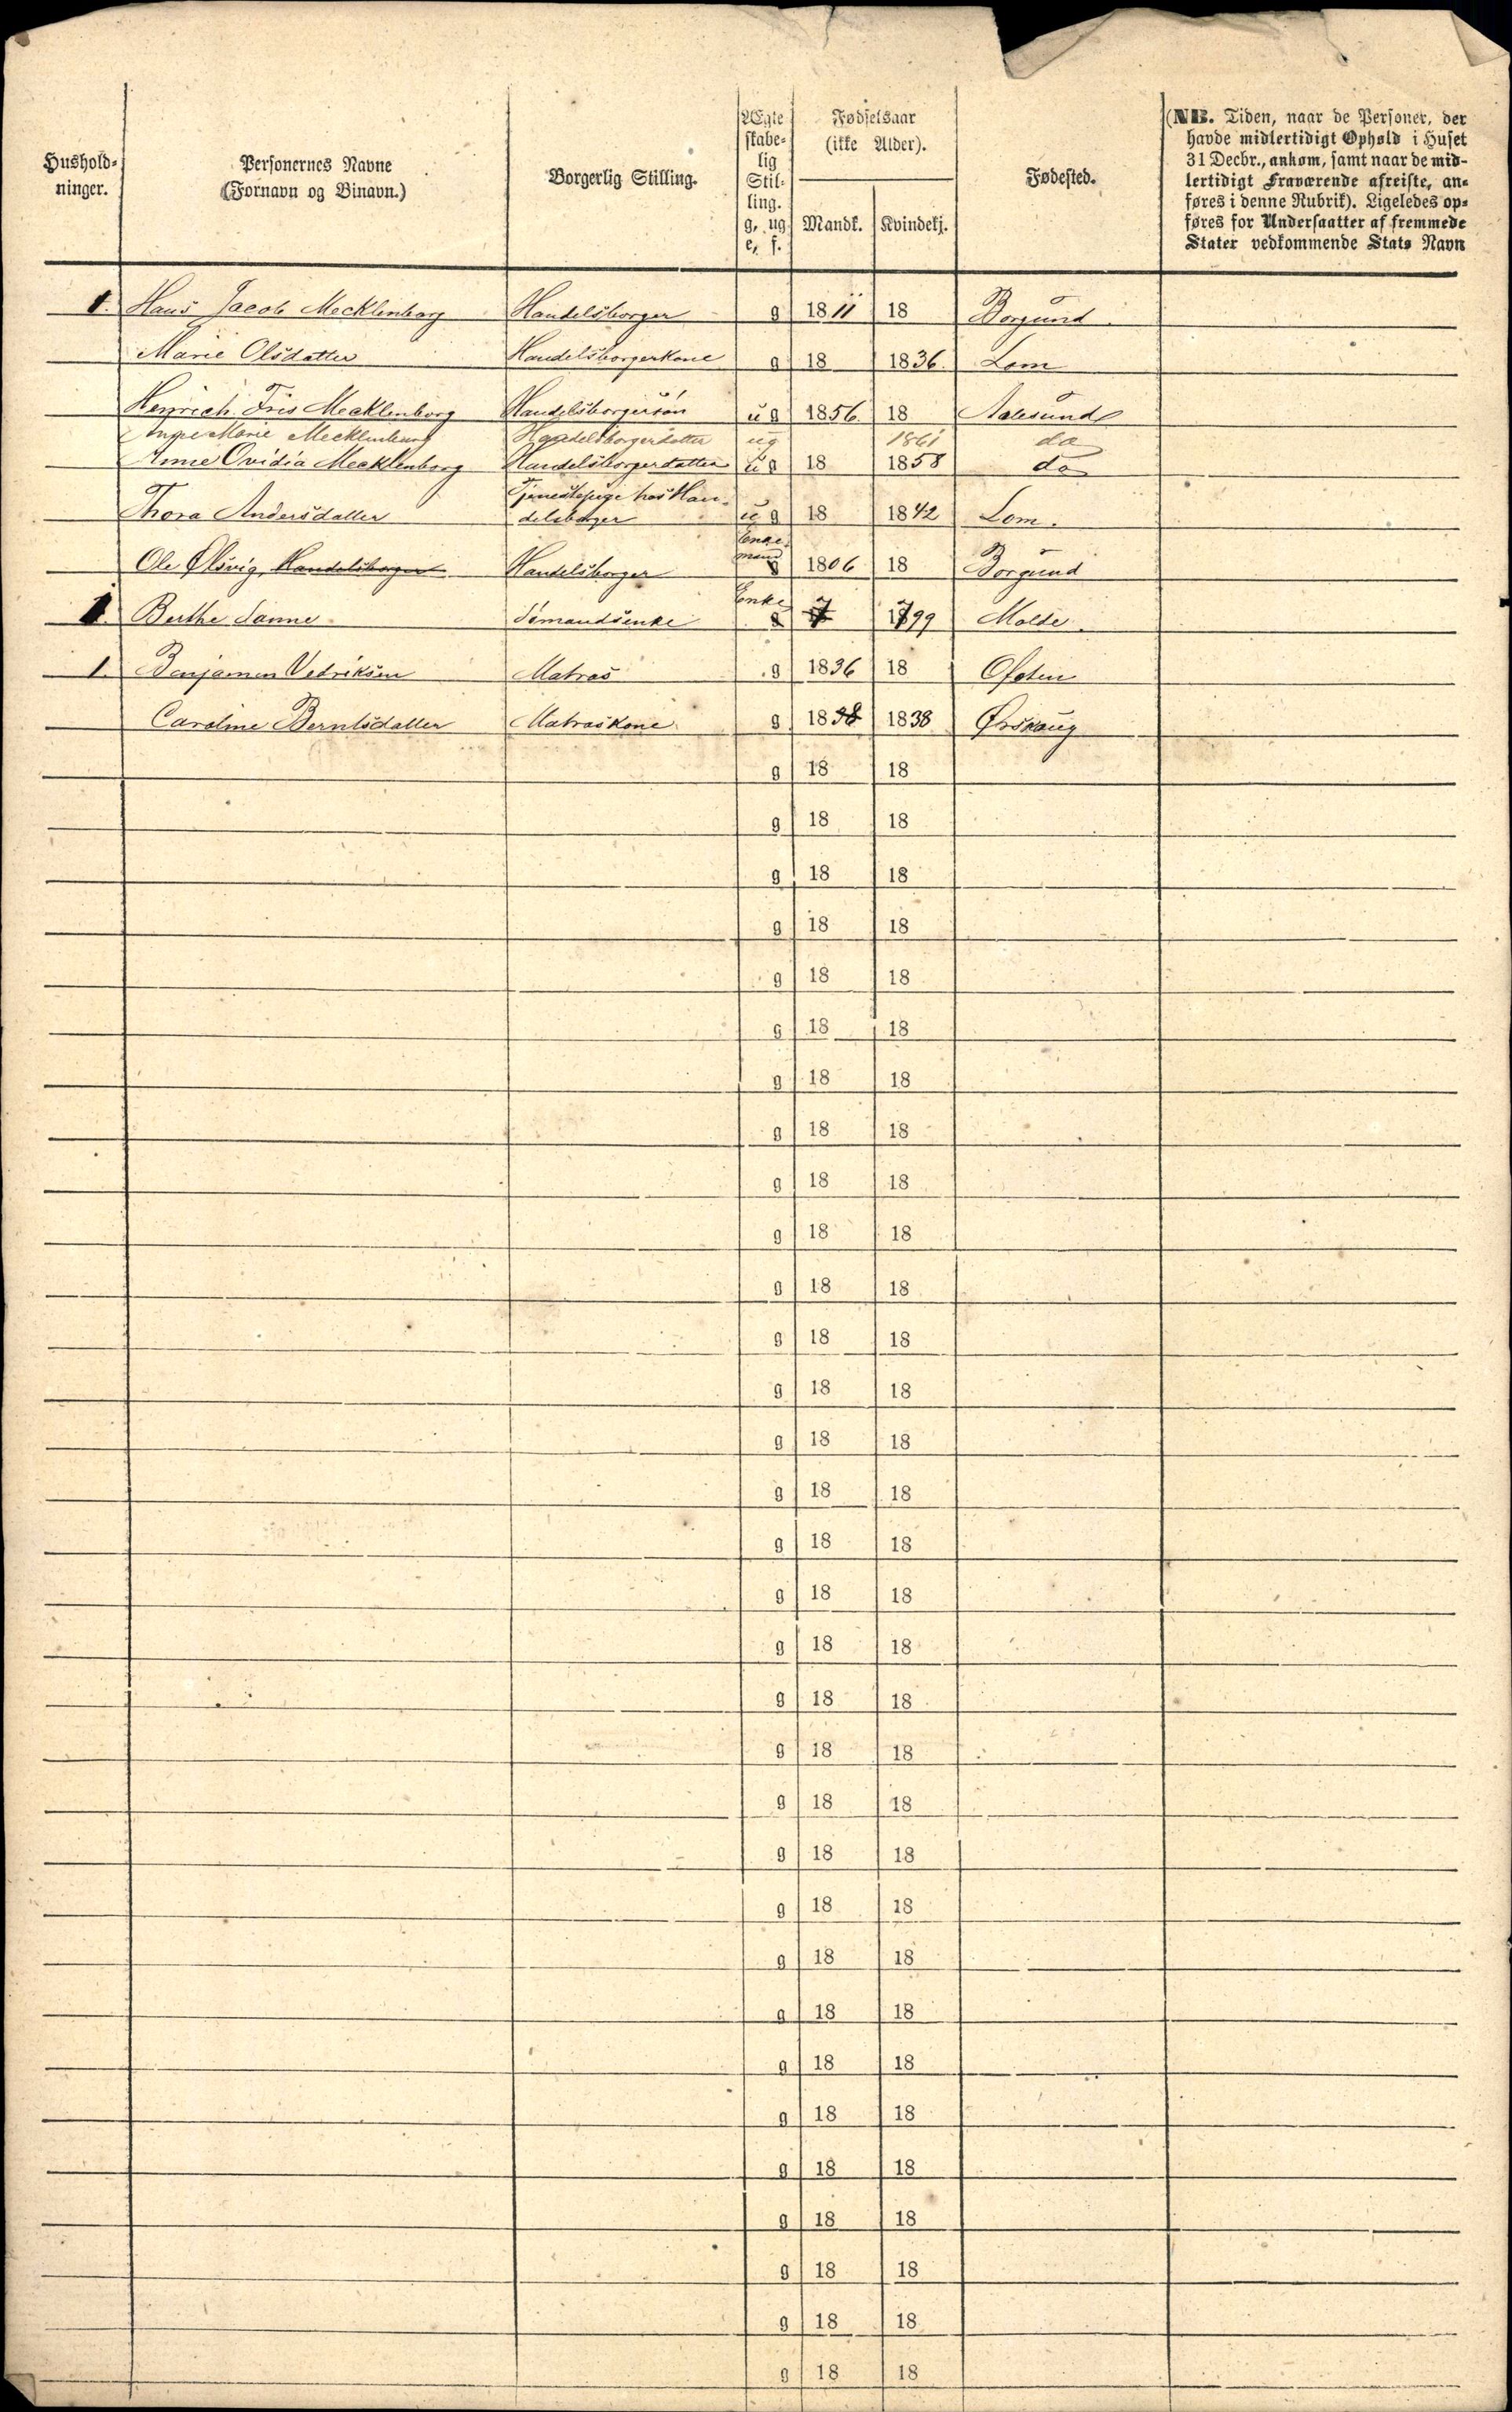 Hushold-
ninger.
Personernes Navne
(Fornavn og Binavn.)
Borgerlig Stilling.
Ægte
skabe-
lig
Stil-
ling.
g, ug
e, f.
Fødselsaar
(ikke Alder).
Mandk. Kvindekj.
Fødested.
(NB. Tiden, naar de Personer, der
havde midlertidigt Ophold i Huset
31 Decbr., ankom, samt naar de mid-
lertidigt Fraværende afreiste, an-
føres i denne Rubrik). Ligeledes op-
føres for Undersaatter af fremmede
Stater vedkommende Stats Navn
1. Hans Jacob Mecklenborg Handelsborger g 1811 18 Borgund
Marie Olsdatter Handelsborgerkone g 18 1836. Lom
Henrich Fris Mecklenborg Handelsborgersön ug 1856 18 Aalesund
Inge Marie Mecklenburg Handelsborgerdatter ug 1861 do
Anne Ovidia Mecklenborg Handelsborgerdatter ug 18 1858 do
Thora Andersdatter Tjenestepige hos Han-
delsborger ug 18 1842 Lom.
Ole Ølsvig, Handelsborger Handelsborger Enke
mand 1806 18 Borgund
1. Berthe Sanne Sömandsenke Enke 1799 Molde.
1. Benjamin Vedriksen Matros g 1836 18 Ofoten
Caroline Berntsdatter Matroskone g 1838 1838 Ørskoug
g 18 18
g 18 18
g 18 18
g 18 18
g 18 18
g 18 18
g 18 18
g 18 18
g 18 18
g 18 18
g 18 18
g 18 18
g 18 18
g 18 18
g 18 18
g 18 18
g 18 18
g 18 18
g 18 18
g 18 18
g 18 18
g 18 18
g 18 18
g 18 18
g 18 18
g 18 18
g 18 18
g 18 18
g 18 18
g 18 18
g 18 18
g 18 18